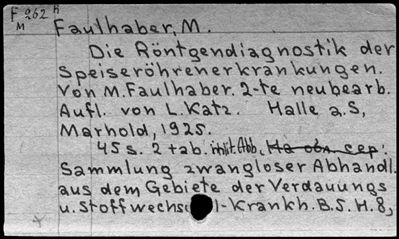 F 262 h
M
Faulhaber, M.
Die Röntgendiagnostik der
Speiseröhrenerkrankungen.
Von M. Faulhaber. 2-te neubearb.
Aufl. von L. Katz. Halle a. S,
Marhold, 1925.
45 s. 2 tab. mit Abb. На обл. сер:
Sammlung zwangloser Abhandl.
aus dem Gebiete der Verdauungs
u. Stoffwechs l-Krankh. B. 5. H. 8,